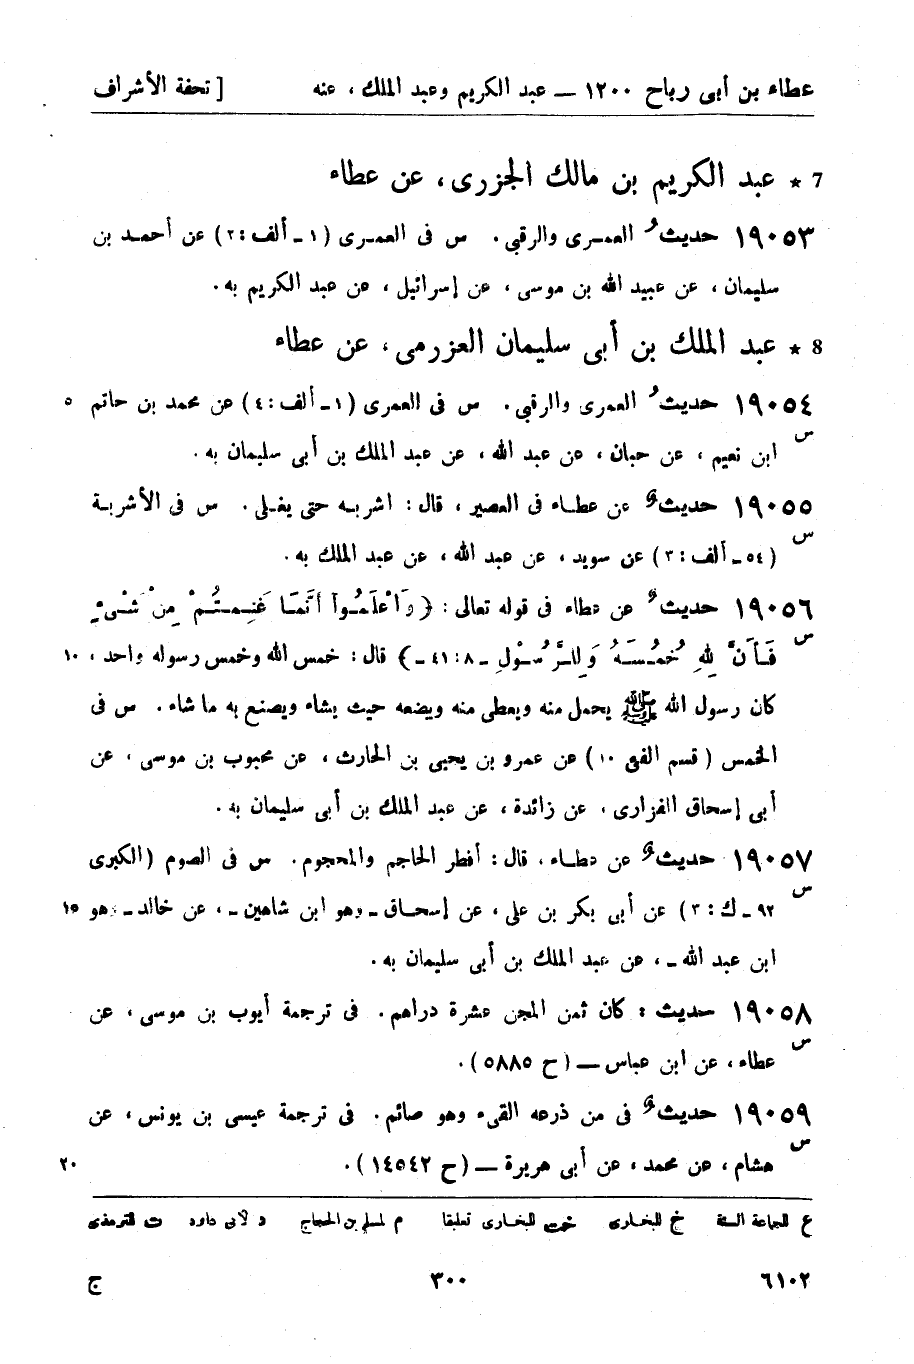 عطاء بن أبى رباح ١٢٠٠ — عبد الكريم وعبد الملك ، عنه [ تحفة الأشراف
7 * عبد الكريم بن مالك الجزرى، عن عطاء
١٩٠٥٣ حديث العمـرى والرقبى. س فى العمـرى (١ـ ألف:٢) عن أحمـد بن
سليمان ، عن عبيد الله بن موسى ، عن إسرائيل ، عن عبد الكريم به.
8 * عبد الملك بن أبى سليمان العزرمى، عن عطاء
١٩٠٥٤ حديث العمرى والرقبى. س فى العمرى (١ـ ألف:٤) عن محمد بن حاتم ٥
س ابن نعيم ، عن حبان ، عن عبد الله ، عن عبد الملك بن أبى سليمان به.
١٩٠٥٥ حديث عن عطـاء فى العصير ، قال: اشربـه حتى يغـلى. س فى الأشربـة
س (٥٤ـ ألف:٣) عن سويد ، عن عبد الله ، عن عبد الملك به.
١٩٠٥٦ حديث عن عطاء فى قوله تعالى: ﴿ وَٱعْلَمُوٓا أَنَّمَا غَنِـمْتُـمْ مِنْ شَىْءٍ
س فَـأَنَّ لِلهِ خُمُـسَـهُ وَلِلـرَّسُـوْلِ ـ ٤١:٨ ـ﴾ قال: خمس الله وخمس رسوله واحد ، ١٠
كان رسول الله ﷺ يحمل منه ويعطى منه ويضعه حيث يشاء ويصنع به ما شاء. س فى
الخمس (قسم الفئ ١٠) عن عمرو بن يحيى بن الحارث ، عن محبوب بن موسى ، عن
أبى إسحاق الفزارى ، عن زائدة ، عن عبد الملك بن أبى سليمان به.
١٩٠٥٧ حديث عن عطـاء ، قال: أفطر الحاجم والمحجوم. س فى الصوم (الكبرى
س ٩٢ـ ك:٣) عن أبى بكر بن على ، عن إسحـاق ـ وهو ابن شاهين ـ، عن خالد ـ وهو ١٥
ابن عبد الله ـ، عن عبد الملك بن أبى سليمان به.
١٩٠٥٨ حديث : كان ثمن المجن عشرة دراهم. فى ترجمة أيوب بن موسى ، عن
س عطاء ، عن ابن عباس — (ح ٥٨٨٥).
١٩٠٥٩ حديث فى من ذرعه القىء وهو صائم. فى ترجمة عيسى بن يونس ، عن
س هشام ، عن محمد ، عن أبى هريرة — (ح ١٤٥٤٢). ٢٠
ع للجماعة الستة خ للبخـارى خت للبخـارى تعليقا م لمسلم بن الحجاج د لأبى داود ت للترمذى
٦١٠٢ ٣٠٠ ج